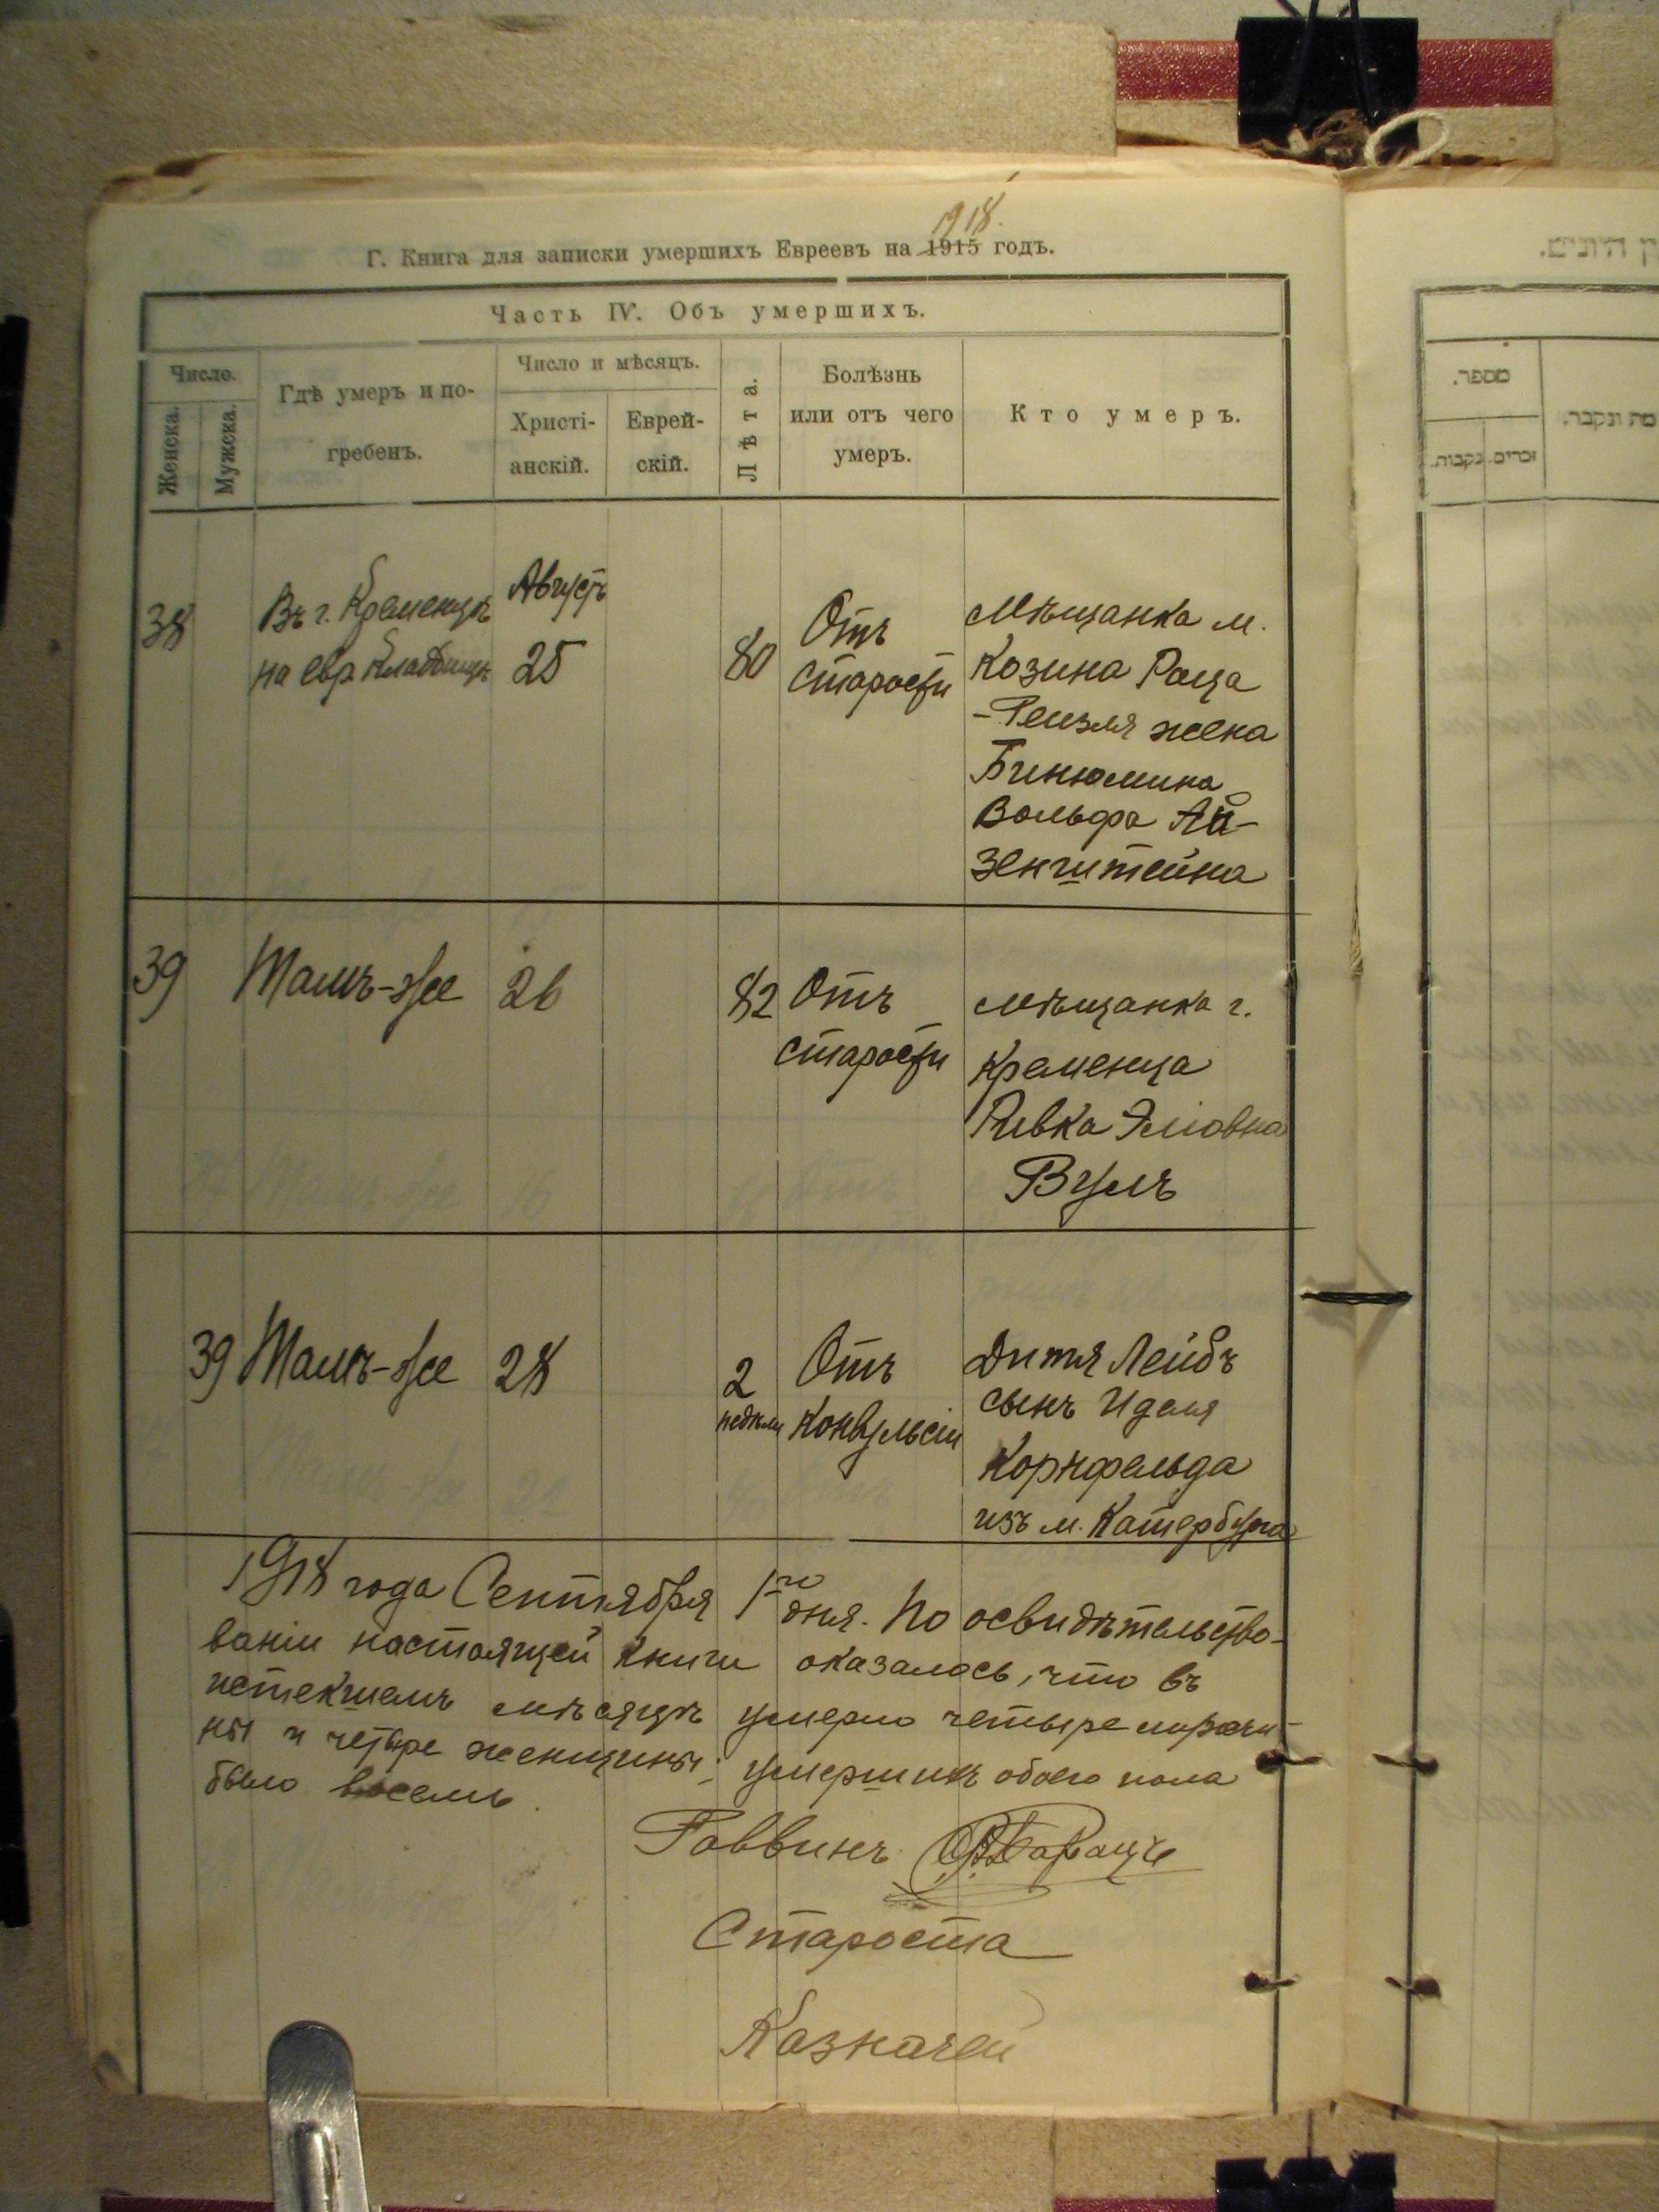 1918.
Г. Книга для записки умершихъ Евреевъ на 1915 годъ.
Часть IV. Объ умершихъ.
Число.
Женска.
Мужска.
Гдѣ умеръ и по-
гребенъ.
Число и мѣсяцъ.
Христі-
анскій.
Еврей-
скій.
Лѣта.
Болѣзнь
или отъ чего
умеръ.
Кто умеръ.
38
Въ г. Кременцѣ
на евр кладбищѣ
Августъ
25
80
Отъ
старости
Мѣщанка м.
Козина Раца
-Рейзля жена
Бинюмина
Вольфа Ай-
зенштейна
39
Тамъ-же
26
82
Отъ
старости
Мѣщанка г.
Кременца
Ривка Эліовна
Вулъ
39
Тамъ-же
28
2
недѣли
Отъ
конвульсіи
Дитя Лейбъ
сынъ Иделя
Корнфельда
изъ м. Катербурга
1918 года Сентября 1го дня. По освидѣтельство-
ваніи настоящей книги оказалось, что въ
истекшемъ мѣсяцѣ умерло четыре мужчи-
ны и четыре женщины; умершихъ обоего пола
было восемь.
Раввинъ
Староста
Казначей
מספר.
זכרים.
נקבות.
מת ונקבר.